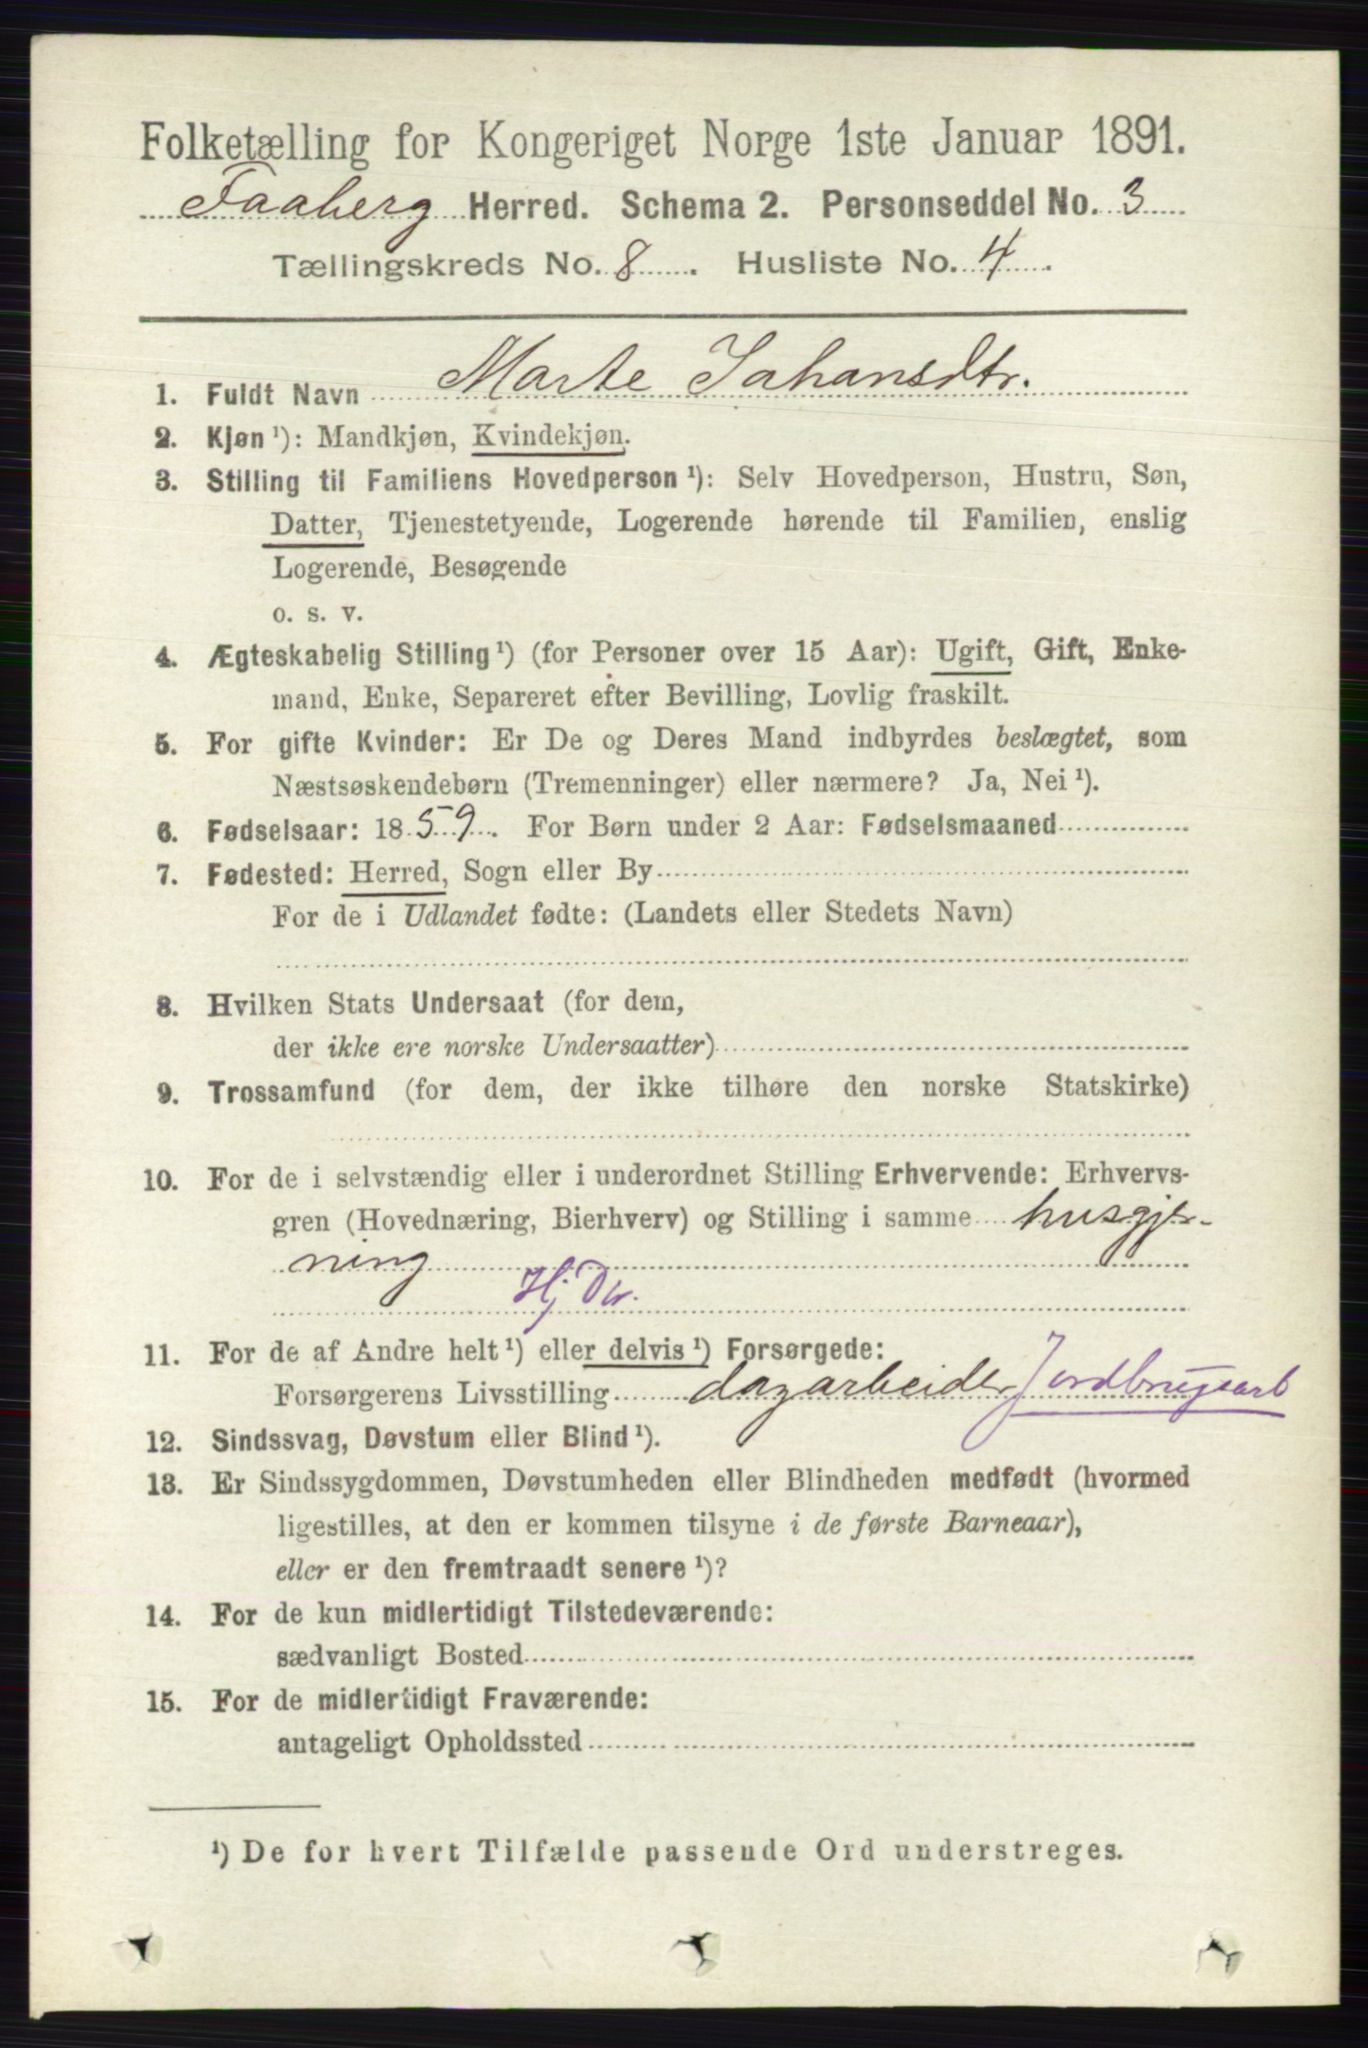 Folketælling for Kongeriget Norge 1ste Januar 1891.
Faaberg Herred. Schema 2. Personseddel No. 3
Tællingskreds No. 8. Husliste No. 4.
1. Fuldt Navn Marte Johansdtr.
2. Kjøn ¹): Mandkjøn, Kvindekjøn.
3. Stilling til Familiens Hovedperson ¹): Selv Hovedperson, Hustru, Søn,
Datter, Tjenestetyende, Logerende hørende til Familien, enslig
Logerende, Besøgende
o. s. v.
4. Ægteskabelig Stilling ¹) (for Personer over 15 Aar): Ugift, Gift, Enke-
mand, Enke, Separeret efter Bevilling, Lovlig fraskilt.
5. For gifte Kvinder: Er De og Deres Mand indbyrdes beslægtet, som
Næstsøskendebørn (Tremenninger) eller nærmere? Ja, Nei ¹).
6. Fødselsaar: 1859. For Børn under 2 Aar: Fødselsmaaned
7. Fødested: Herred, Sogn eller By
For de i Udlandet fødte: (Landets eller Stedets Navn)
8. Hvilken Stats Undersaat (for dem,
der ikke ere norske Undersaatter)
9. Trossamfund (for dem, der ikke tilhøre den norske Statskirke)
10. For de i selvstændig eller i underordnet Stilling Erhvervende: Erhvervs-
gren (Hovednæring, Bierhverv) og Stilling i samme husgjer-
ning
Hj Dtr.
11. For de af Andre helt ¹) eller delvis ¹) Forsørgede:
Forsørgerens Livsstilling dagarbeider Jordbrugsarb
12. Sindssvag, Døvstum eller Blind ¹).
13. Er Sindssygdommen, Døvstumheden eller Blindheden medfødt (hvormed
ligestilles, at den er kommen tilsyne i de første Barneaar),
eller er den fremtraadt senere ¹)?
14. For de kun midlertidigt Tilstedeværende:
sædvanligt Bosted
15. For de midlertidigt Fraværende:
antageligt Opholdssted
¹) De for hvert Tilfælde passende Ord understreges.